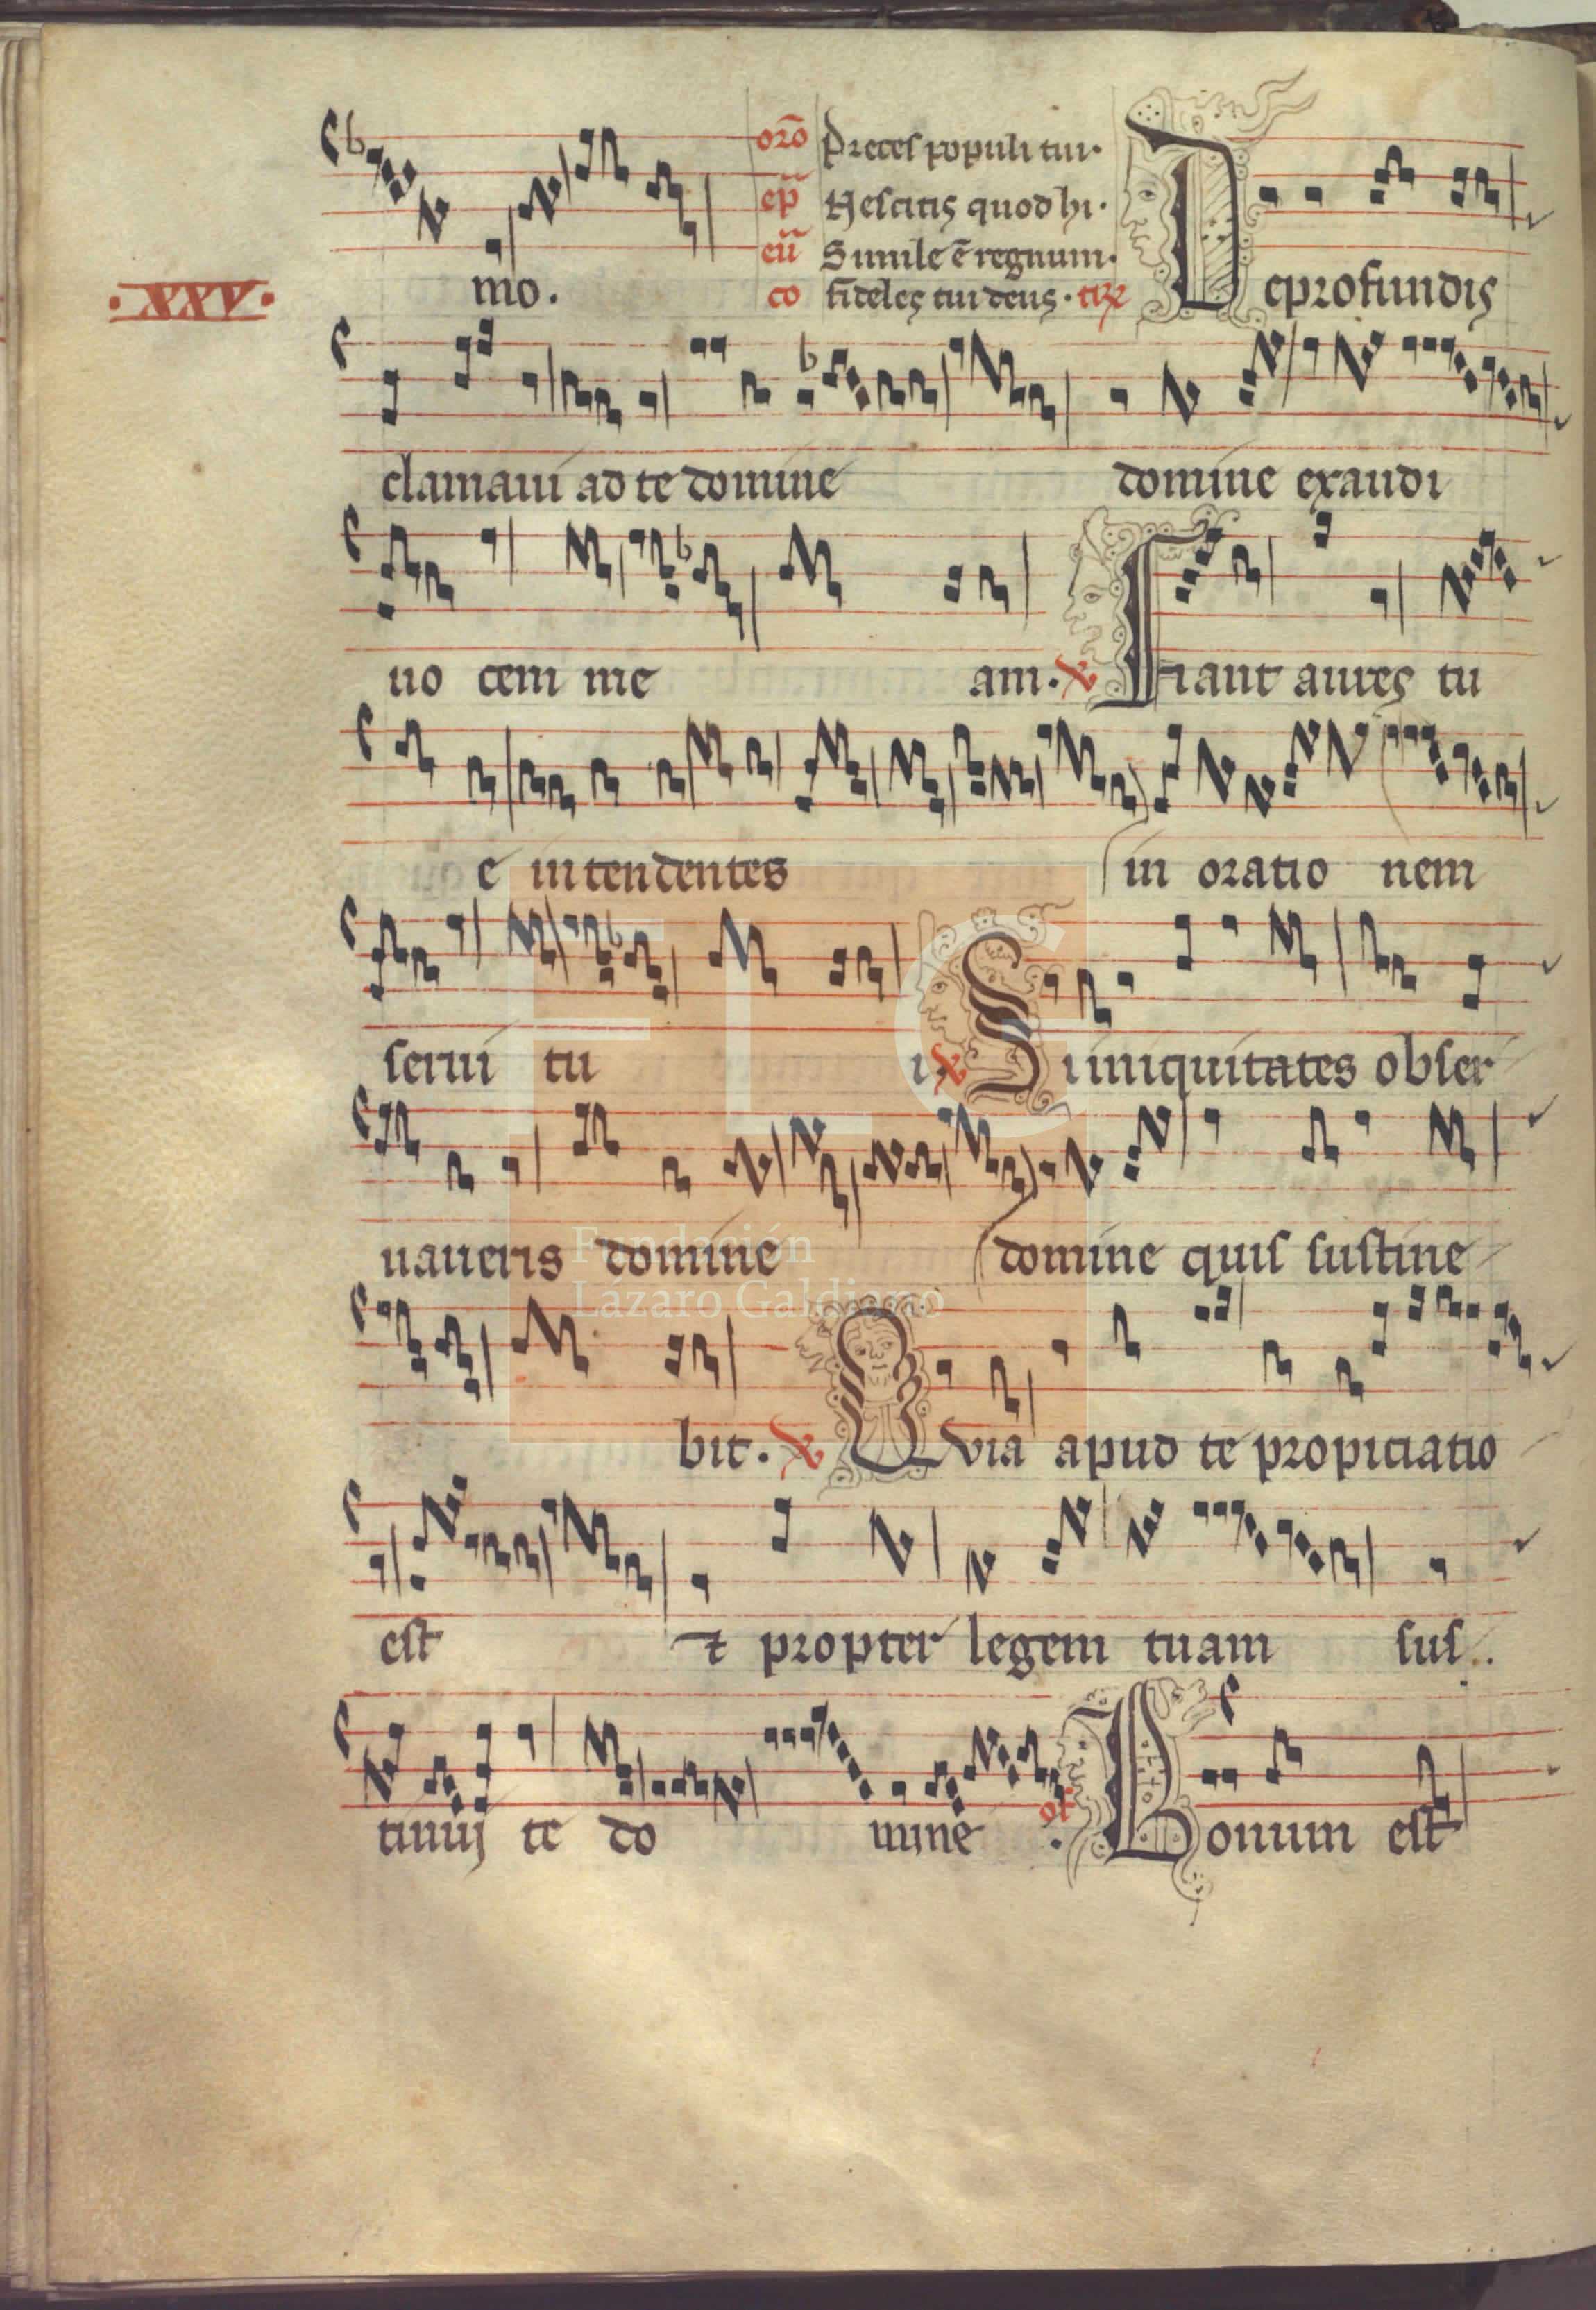 orō Preces populi tui·
ep̄ Nescitis quod hi·
eū Simile ē regnum·
·XXV·
mo. co fideles tui deus· D eprofundis
clamaui ad te domine domine exaudi
uo cem me am· Fiant aures tu
e intendentes in oratio nem
serui tu i· Si iniquitates obser
uaueris domine domine quis sustine
bit. Quia apud te propiciatio
est ⁊ propter legem tuam sus..
tinuij te do mine of Bonum est
FLG
Fundación
Lázaro Galdiano